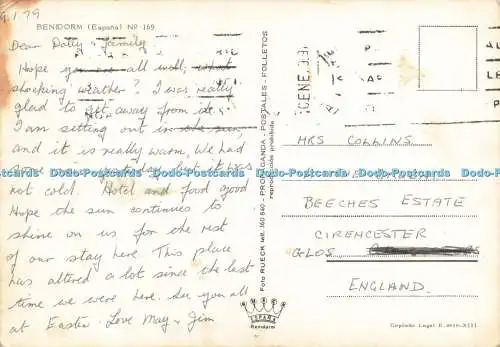 9.1.79
BENIDORM (España) Nº 169
Dear Dolly & family
Hope you are all well, what
shocking weather? I was really
glad to get away from it.
I am sitting out in the sun
and it is really warm, We had
some rain yesterday but it was
not cold. Hotel and food good
Hope the sun continues to
shine on us for the rest
of our stay here. This place
has altered a lot since the last
time we were here. See you all
at Easter. Love May & Jim
Foto RUECK PROPAGANDA - POSTALES - FOLLETOS
reproducción prohibida
ESPAÑA
Benidorm
MRS COLLINS
BEECHES ESTATE
CIRENCESTER
GLOS
ENGLAND.
Depósito Legal
Dodo-Postcards Dodo-Postcards Dodo-Postcards Dodo-Postcards